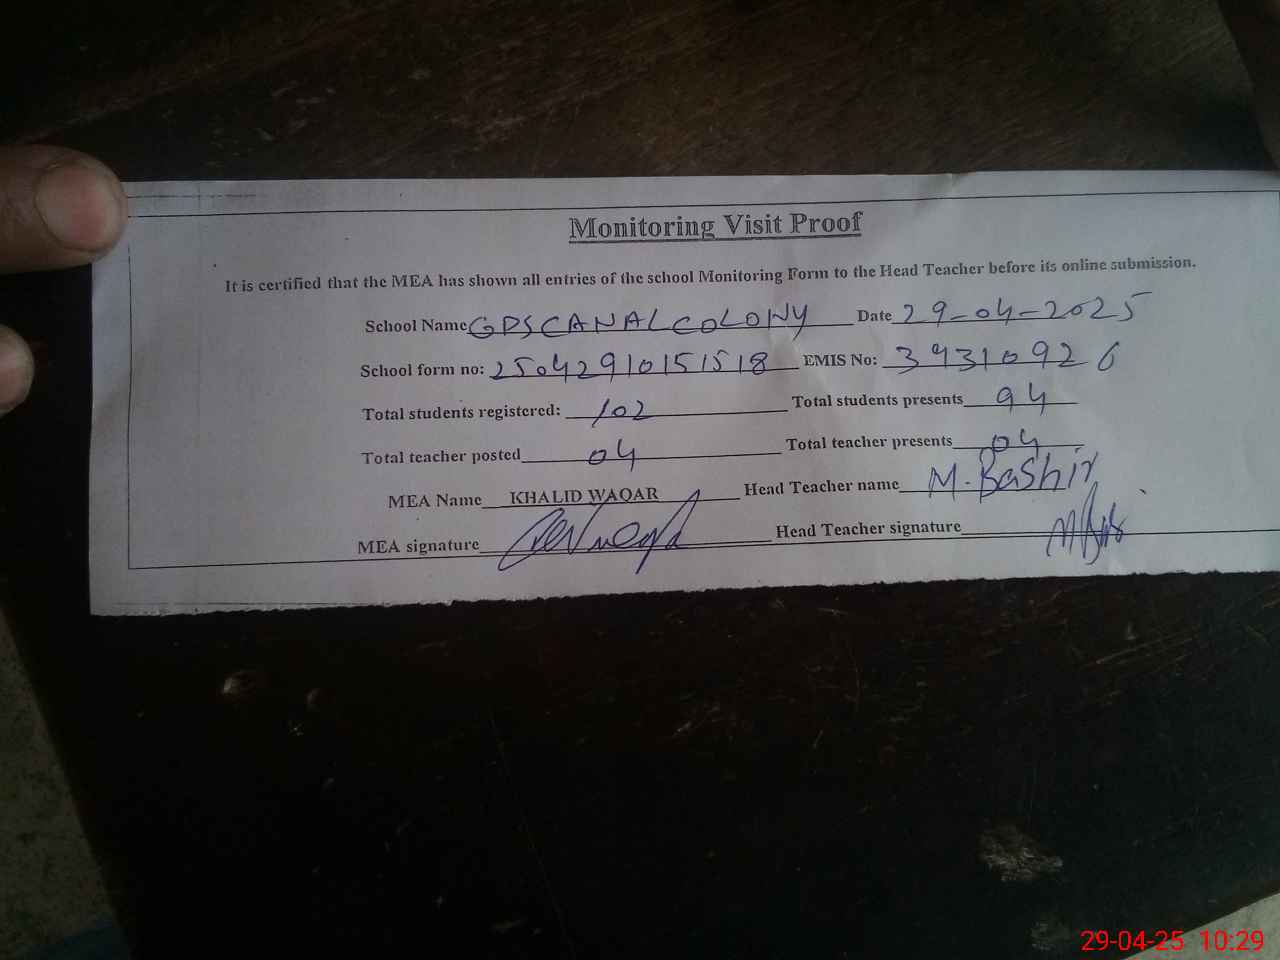 Monitoring Visit Proof
It is certified that the MEA has shown all entries of the school Monitoring Form to the Head Teacher before its online submission.
School Name GPS CANAL COLONY Date 29-04-2025
School form no: 25042910151518 EMIS No: 39310926
Total students registered: 102 Total students presents 94
Total teacher posted 04 Total teacher presents 04
MEA Name KHALID WAQAR Head Teacher name M. Bashir
MEA signature Head Teacher signature
29-04-25 10:29